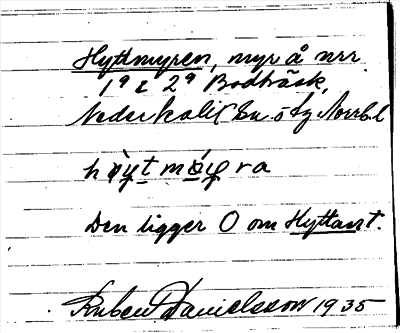 Hyttmyren, myr å nrr
1⁠ᵃ & 2ᵃ Bodträsk,
Nederkalix sn. o tg Norrb. l
h
Den ligger O om Hyttanst.
Ruben Danielsson 1935